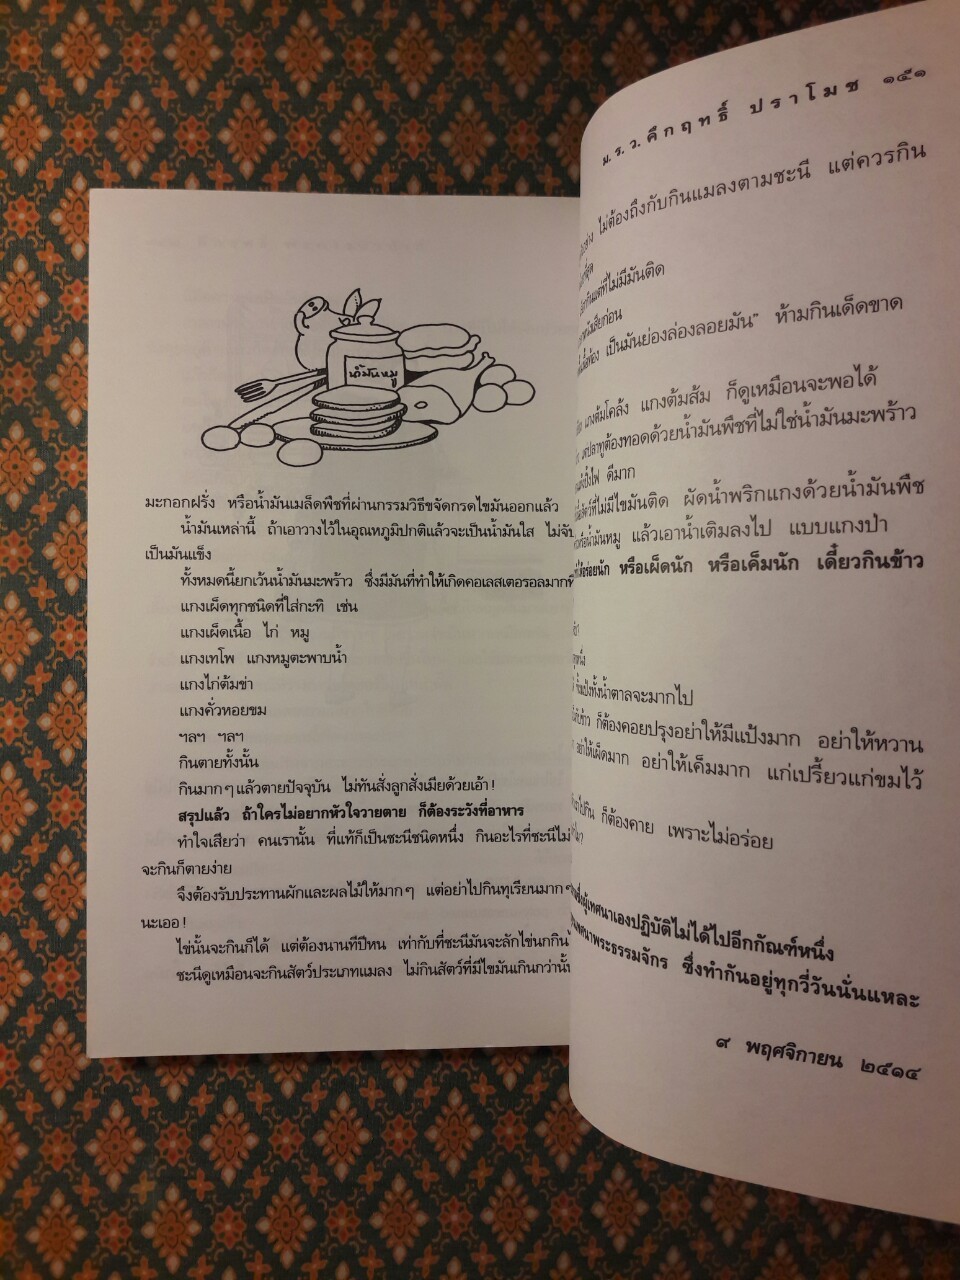 น้ำมันหมู
มะกอกฝรั่ง หรือน้ำมันเมล็ดพืชที่ผ่านกรรมวิธีขจัดกรดไขมันออกแล้ว
น้ำมันเหล่านี้ ถ้าเอาวางไว้ในอุณหภูมิปกติแล้วจะเป็นน้ำมันใส ไม่จับ
เป็นมันแข็ง
ทั้งหมดนี้ยกเว้นน้ำมันมะพร้าว ซึ่งมีมันที่ทำให้เกิดคอเลสเตอรอลมาก
แกงเผ็ดทุกชนิดที่ใส่กะทิ เช่น
แกงเผ็ดเนื้อ ไก่ หมู
แกงเทโพ แกงหมูตะพาบน้ำ
แกงไก่ต้มข่า
แกงคั่วหอยขม
ฯลฯ ฯลฯ
กินตายทั้งนั้น
กินมากๆ แล้วตายปัจจุบัน ไม่ทันสั่งลูกสั่งเมียด้วยเอ้า!
สรุปแล้ว ถ้าใครไม่อยากหัวใจวายตาย ก็ต้องระวังที่อาหาร
ทำใจเสียว่า คนเรานั้น ที่แท้ก็เป็นชะนีชนิดหนึ่ง กินอะไรที่ชะนีไม่
จะกินก็ตายง่าย
จึงต้องรับประทานผักและผลไม้ให้มากๆ แต่อย่าไปกินทุเรียนมากๆ
นะเออ!
ไข่นั้นจะกินก็ได้ แต่ต้องนานทีปีหน เท่ากับที่ชะนีมันจะลักไข่นกกิน
ชะนีดูเหมือนจะกินสัตว์ประเภทแมลง ไม่กินสัตว์ที่มีไขมันเกินกว่านั้น
ม.ร.ว. คึกฤทธิ์ ปราโมช ๑๕๑
ไม่ต้องถึงกับกินแมลงตามชะนี แต่ควรกิน
กินแต่ที่ไม่มีมันติด
เสียก่อน
เป็นมันย่องล่องลอยมัน" ห้ามกินเด็ดขาด
แกงต้มโคล้ง แกงต้มส้ม ก็ดูเหมือนจะพอได้
ปลาทูต้องทอดด้วยน้ำมันพืชที่ไม่ใช่น้ำมันมะพร้าว
ปิ้งไฟ ดีมาก
สัตว์ที่ไม่มีไขมันติด ผัดน้ำพริกแกงด้วยน้ำมันพืช
หรือน้ำมันหมู แล้วเอาน้ำเติมลงไป แบบแกงป่า
อร่อยนัก หรือเผ็ดนัก หรือเค็มนัก เดี๋ยวกินข้าว
ทั้งแป้งทั้งน้ำตาลจะมากไป
ก็ต้องคอยปรุงอย่าให้มีแป้งมาก อย่าให้หวาน
อย่าให้เผ็ดมาก อย่าให้เค็มมาก แก่เปรี้ยวแก่ขมไว้
ก็ต้องคาย เพราะไม่อร่อย
ผู้เทศนาเองปฏิบัติไม่ได้ไปอีกกัณฑ์หนึ่ง
เทศนาพระธรรมจักร ซึ่งทำกันอยู่ทุกวี่วันนั่นแหละ
๙ พฤศจิกายน ๒๕๑๔